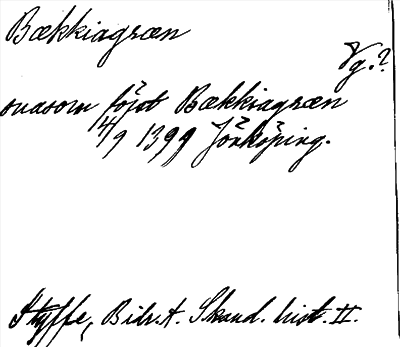 Bækkiagræn
Vg.?
suasom föjst Bækkiagræn
14/9 1399 Jönköping.
Styffe, Bidr. t. Skand. hist. II.